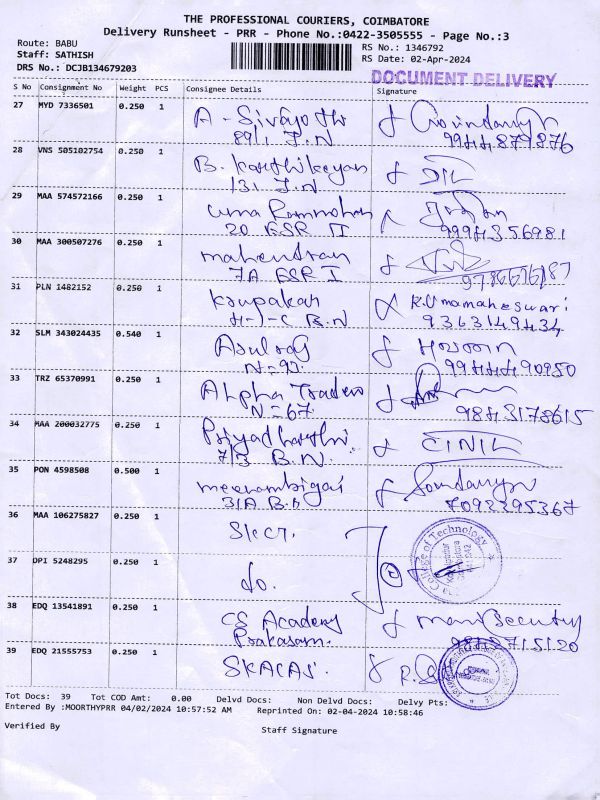 THE PROFESSIONAL COURIERS, COIMBATORE
Delivery Runsheet - PRR - Phone No.:0422-3505555 - Page No.:3
Route: BABU
Staff: SATHISH
DRS No.: DCJB134679203
RS No.: 1346792
RS Date: 02-Apr-2024
DOCUMENT DELIVERY
S No Consignment No Weight PCS Consignee Details Signature
27 MYD 7336501 0.250 1 A - Sivajothi
89/1 J.N 9944879876
28 VNS 505102754 0.250 1 B. Karthikeyan
131 J.N
29 MAA 574572166 0.250 1 Uma Rammohan
20 ESR II 9994356981
30 MAA 300507276 0.250 1 Mahendran
7A ESR I
31 PLN 1482152 0.250 1 Krupakar K.Umamaheswari
H-J-C B.N 9363149434
32 SLM 343024435 0.540 1
N=93. 9944490950
33 TRZ 65370991 0.250 1 Alpha Traders
N=67 9843178615
34 MAA 200032775 0.250 1 Priyadharshi
7/3 B.N.
35 PON 4598508 0.500 1 Meenambigai
31A B.N 7092395367
36 MAA 106275827 0.250 1 SKCT.
College of Technology
37 DPI 5248295 0.250 1 do.
38 EDQ 13541891 0.250 1 CS Academy Mani Security
Prakasam.
39 EDQ 21555753 0.250 1 SKACAS.
Tot Docs: 39 Tot COD Amt: 0.00 Delvd Docs: Non Delvd Docs: Delvy Pts:
Entered By :MOORTHYPRR 04/02/2024 10:57:52 AM Reprinted On: 02-04-2024 10:58:46
Verified By Staff Signature